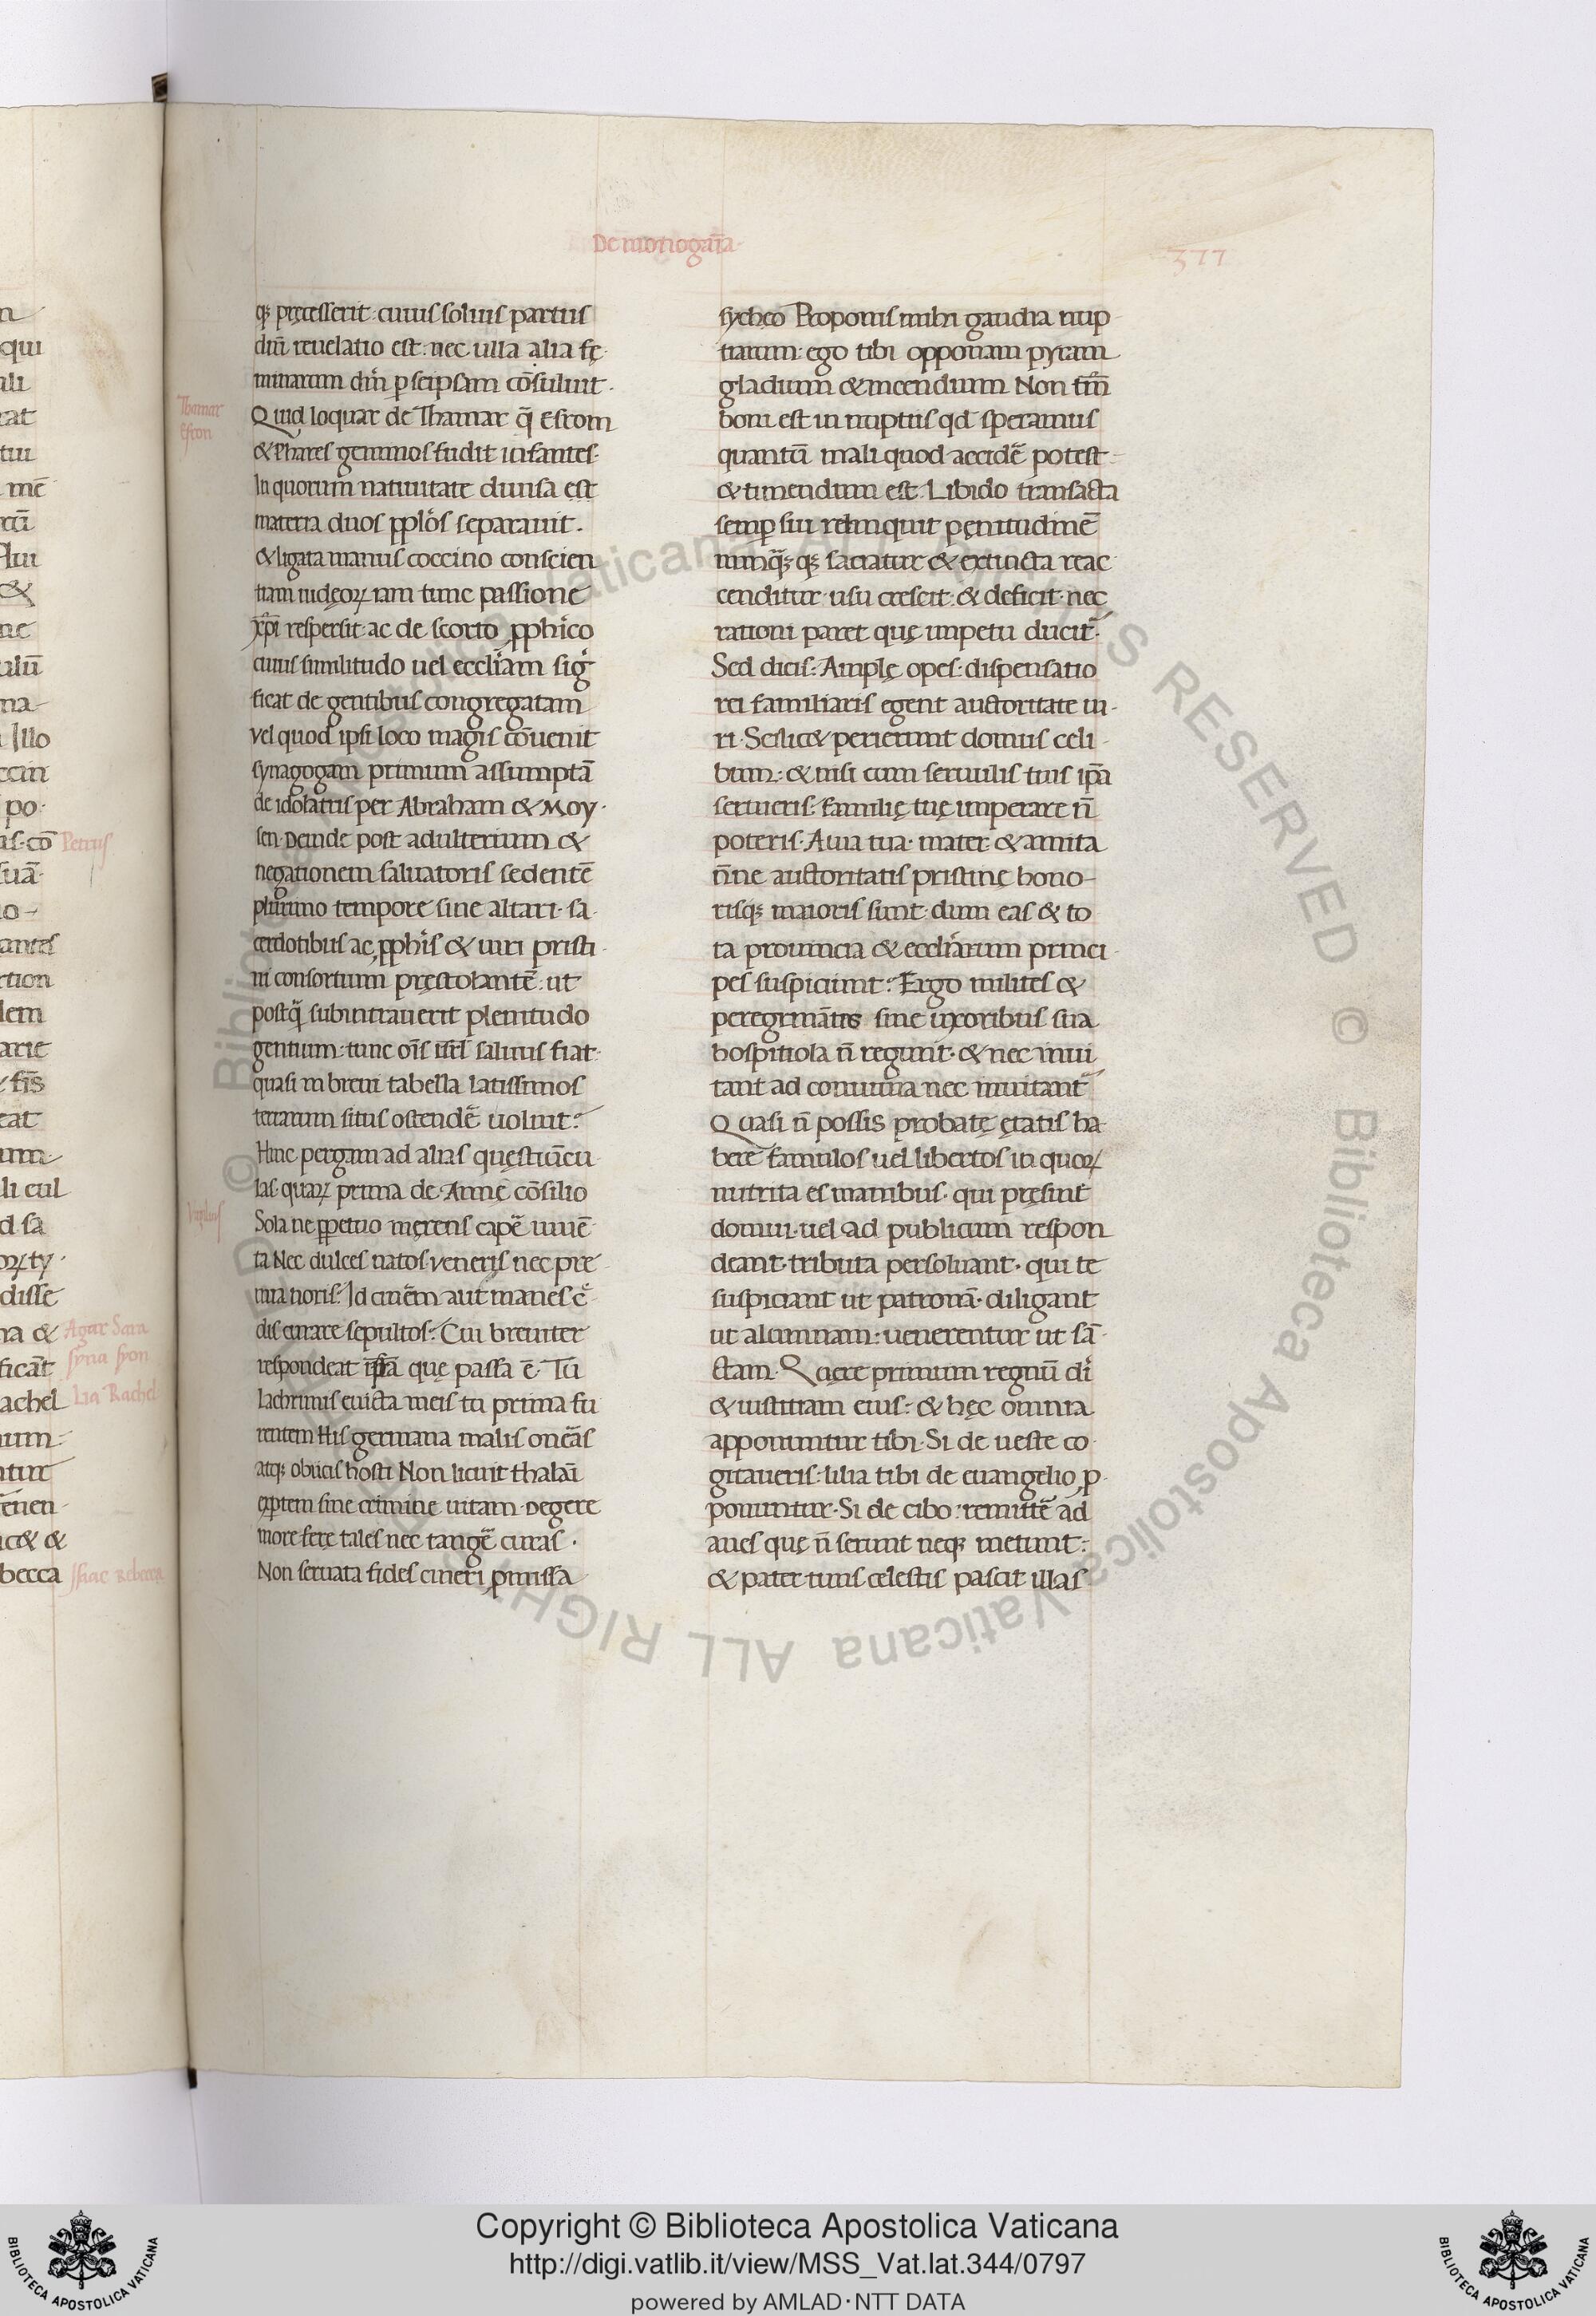 De monogamia
377
qꝫ pręcesserit: cuius soluis partus
diuī reuelatio est: nec ulla alia fę
minarum dm̄ ꝑ seipsam cōsuluit.
Quid loquar de Thamar q̄ Esrom
& Phares geminos fudit infantes.
In quorum natiuitate diuisa est
materia duos pplōs separauit.
& ligata manus coccino conscien
tiam iudęoꝝ iam tunc passione
xp̄i respersit. ac de scorto ꝓph̄ico
cuius similitudo uel eccl̄iam sig
ficat de gentibus congregatam
vel quod ipsi loco magis cōuenit
synagogam primum assumptā
de idolatriis per Abraham & Moy
sen Deinde post adulterium &
negationem saluatoris sedentē
plurimo tempore sine altari. sa
cerdotibus ac ꝓph̄is & uiri pristi
ni consortium pręstolantē: ut
postq̄ subintrauerit plenitudo
gentium: tunc oīs isrl̄ saluus fiat:
quasi in breui tabella latissimos
terrarum situs ostendē uolui:
Hinc pergam ad alias quęstiūcu
las. quaꝝ prima de Annę cōsilio
Sola ne ꝑpetuo męrens carpē iuuē
ta Nec dulces natos. veneris nec prę
mia noris? Id cinērem aut manes c̄
dis curare sepultos? Cui breuiter
respondeat ipsa quę passa ē. Tu
lachrimis euicta meis tu prima fu
rentem His germana malis onēas
atqꝫ obiicis hosti Non licuit thalāi
expertem sine crimine uitam Degere
more ferę tales nec tangē curas.
Non seruata fides cineri ꝓmissa
sycheo Proponis mihi gaudia nup
tiarum. ego tibi opponam pyram
gladium & incendium Non tm̄
boni est in nuptiis qd speramus
quantū mali quod accidē potest
& timendum est. Libido transacta
semꝑ sui relinquit pęnitudinē
nunq̄qꝫ satiatur & extincta reac
cenditur. usu crescit & deficit. nec
rationi paret quę impetu ducit͛.
Sed dicis: Amplę opes. dispensatio
rei familiaris egent auctoritate ui
ri. Scilicet perierunt domus celi
bum: & nisi cum seruulis tuis ipā
serueris: familię tuę imperare n̄
poteris. Auia tua. mater & amita
n̄ne auctoritatis pristinę hono-
risqꝫ maioris sunt. dum eas & to
ta prouincia & eccl̄iarum princi
pes suspiciunt? Ergo milites &
peregrinātes sine uxoribus sua
hospitiola n̄ regunt. & nec inui
tant ad conuiuia nec inuitant͛
Quasi n̄ possis probatę ętatis ha
bere famulos uel libertos in quoꝝ
nutrita es manibus. qui pręsint
domui. uel ad publicum respon
deant. tributa persoluant. qui te
suspiciant ut patronā. diligant
ut alumnam: uenerentur ut sā
ctam. Quęre primum regnū dī
& iustitiam eius: & hęc omnia
apponuntur tibi. Si de ueste co
gitaueris: lilia tibi de euangelio ꝓ
ponuntur. Si de cibo: remittē ad
aues quę n̄ serunt neqꝫ metunt:
& pater tuus celestis pascit illas
Thamar
Esron
Virgilius
Petrus
Agar Sara
syna syon
Lia Rachel
Isaac Rebecca
qui
rat
mē
&
Illo
po.
rtion
lem
eat
disse
na &
achel
& &
becca
© Biblioteca Apostolica Vaticana ALL RIGHTS RESERVED © Biblioteca Apostolica Vaticana ALL RIGHTS RESERVED
Copyright © Biblioteca Apostolica Vaticana
http://digi.vatlib.it/view/MSS_Vat.lat.344/0797
powered by AMLAD·NTT DATA
BIBLIOTECA APOSTOLICA VATICANA
BIBLIOTECA APOSTOLICA VATICANA